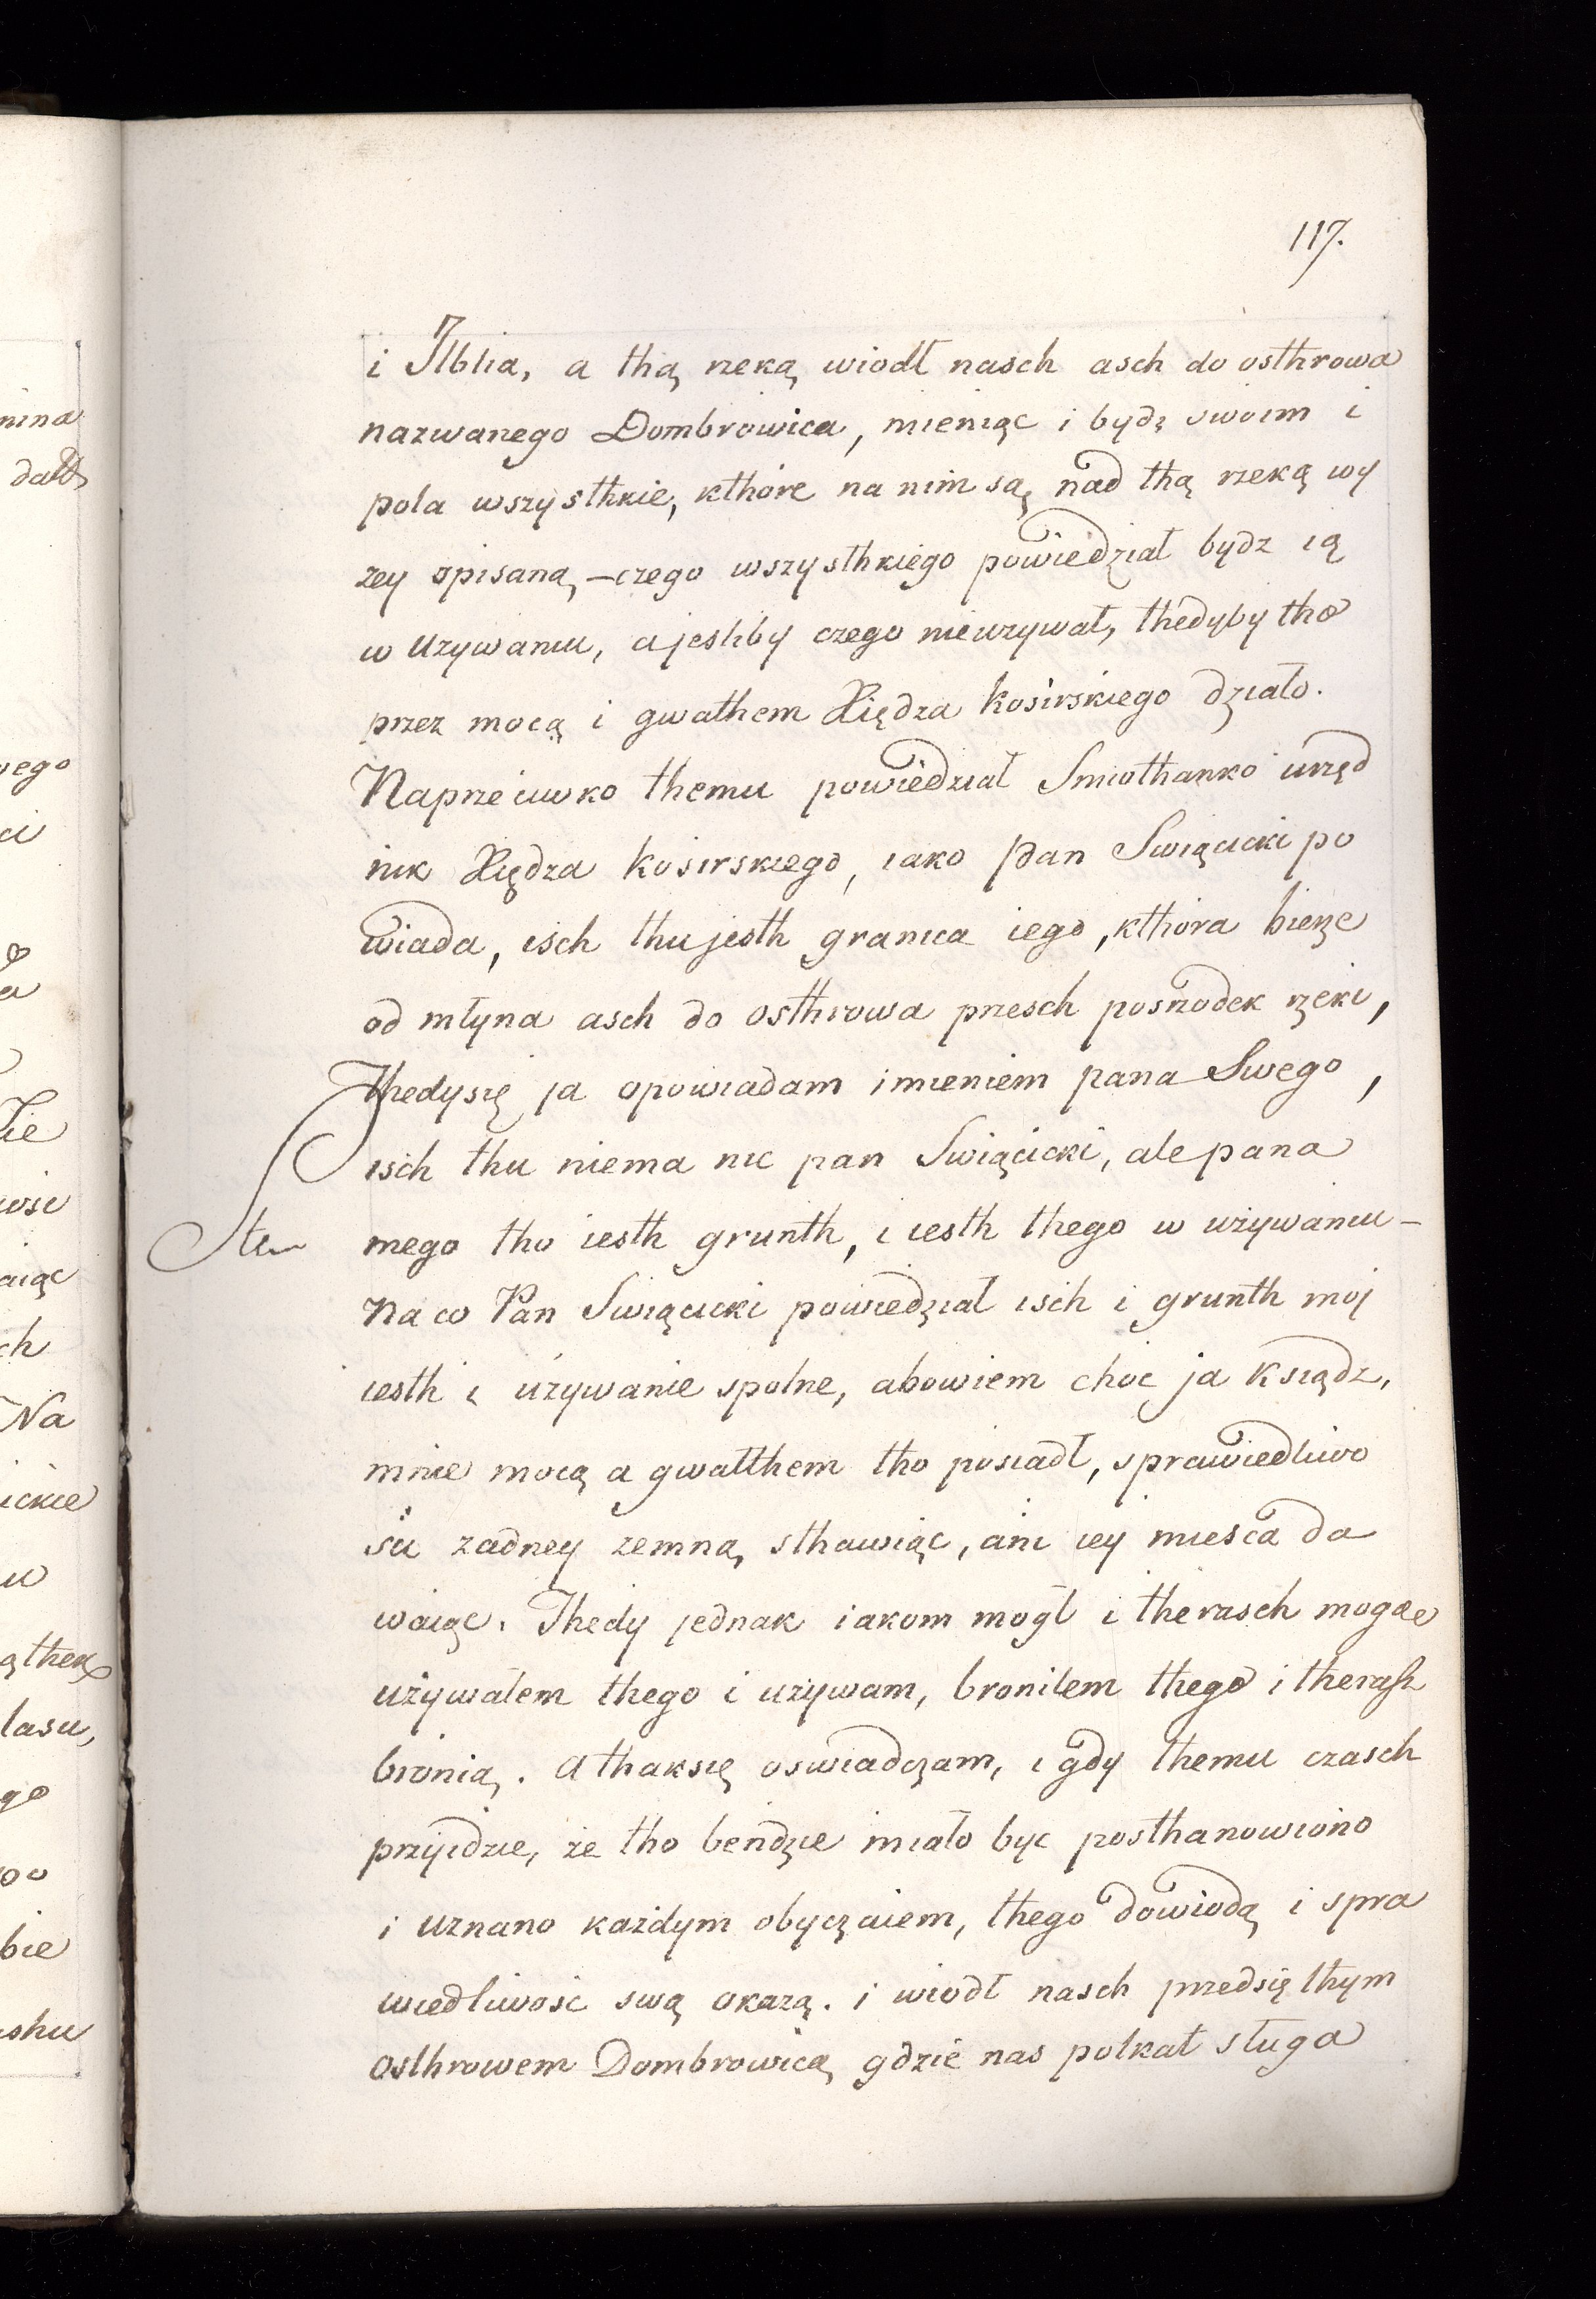 117.
i Ilblia, a thą rzeką wiodł nasch asch do osthrowa
nazwanego Dombrowica, mieniąc i bydz swoim i
pola wszysthkie, kthóre na nim są, nad thą rzeką wy
zey opisaną, – czego wszysthkiego powiedział bydz ią
w uzywaniu, a jesliby czego nieuzywał, thedyby tho
przez mocą i gwathem Xiędza Kosirskiego działo.
Naprzeciwko themu powiedział Smiothanko urzęd
nik Xiędza Kosirskiego, iako pan Swiącicki po
wiada, isch thu jesth granica iego, kthóra bierze
od młyna asch do osthrowa przesch posrzodek rzeki,
Thedysię ja opowiadam imieniem pana Swego,
isch thu niema nic pan Swiącicki, ale pana
mego tho iesth grunth, i iesth thego w używaniu –
Na co Pan Swiącicki powiedział isch i grunth moj
iesth i używanie spolne, abowiem choc ja Ksiądz,
mnie mocą a gwatthem tho posiadł, sprawiedliwo
sci zadney zemną, sthawiąc, ani iey miesca da
waiąc. Thedy jednak iakom mogł i therasch mogąc
używałem thego i używam, broniłem thego i therasz
bronią. A thaksię oswiadczam, i gdy themu czasch
przyidzie, że tho bendzie miało byc posthanowiono
i uznano każdym obyczaiem, thego dowiodą i spra
wiedliwosc swą okazą. i wiodł nasch przedsię thym
osthrowem Dombrowicą, gdzie nas potkał sługa